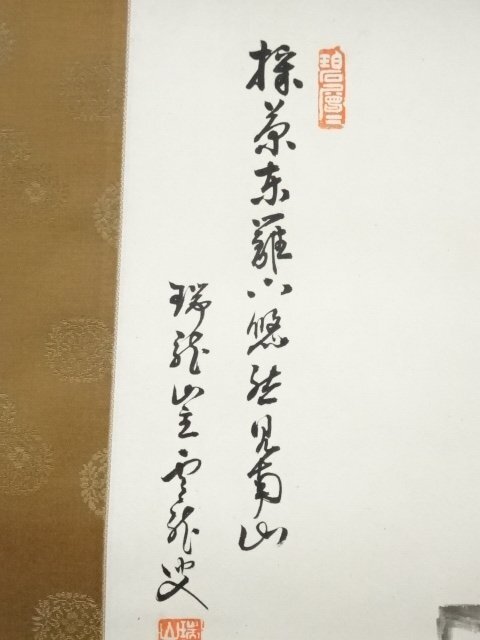 採菊東籬下悠然見南山
瑞龍山主雲龍叟